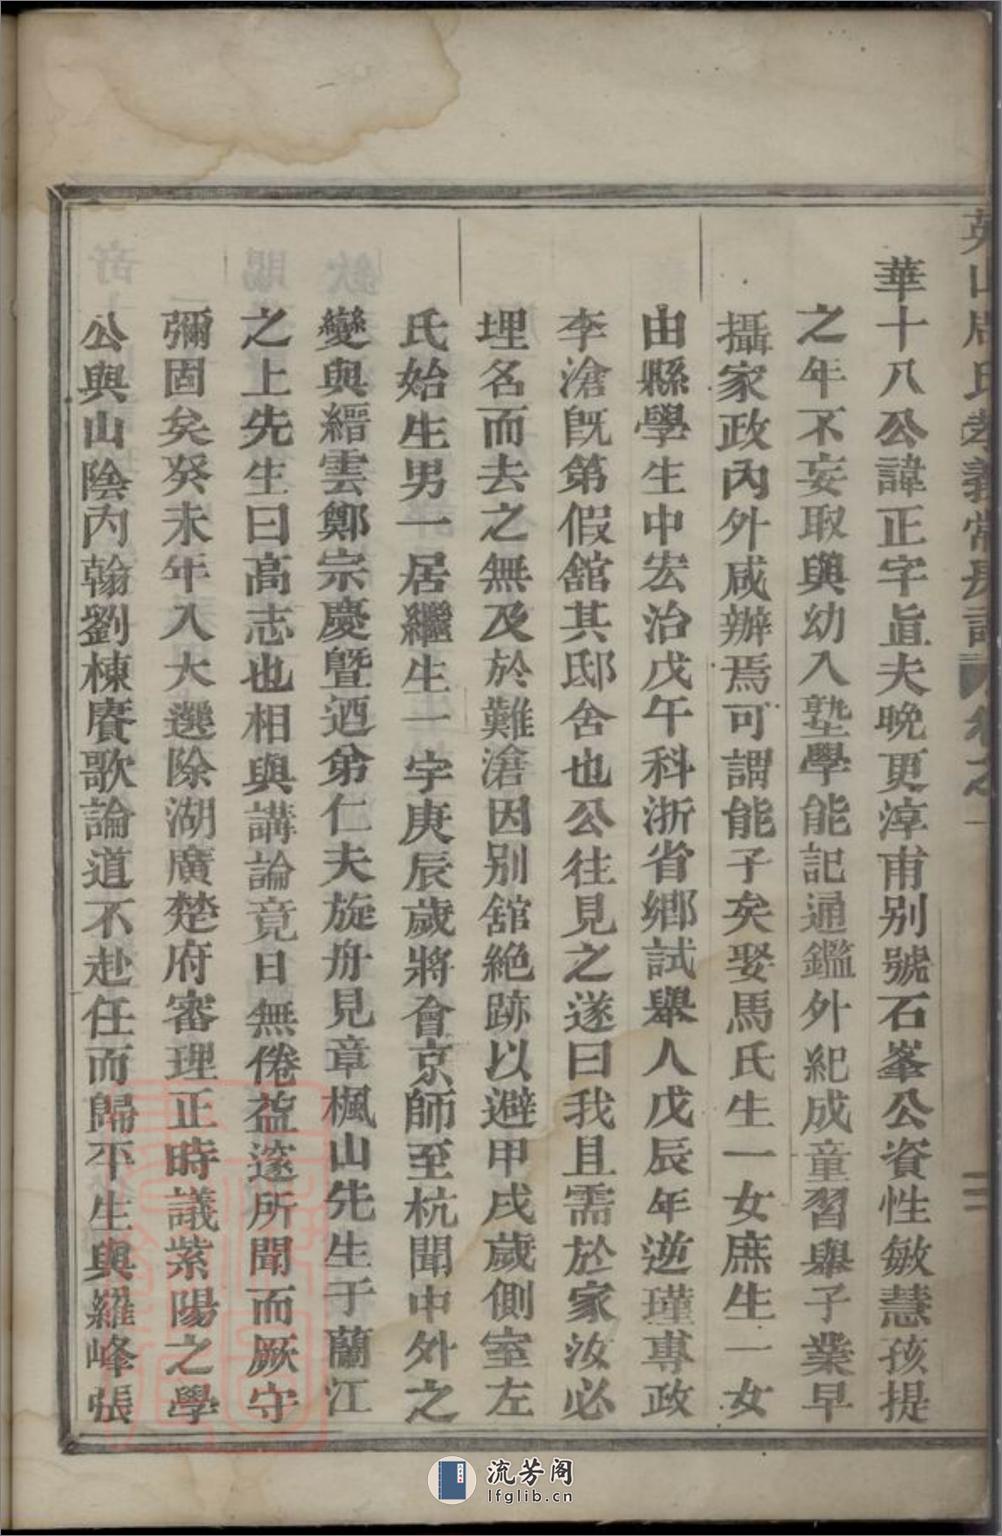 英山周氏孝義常房譜 卷之一
華十八公諱正字眞夫晚更淳甫別號石峯公資性敏慧孩提
之年不妄取與幼入塾學能記通鑑外紀成童習舉子業早
攝家政內外咸辦焉可謂能子矣娶馬氏生一女庶生一女
由縣學生中宏治戊午科浙省鄉試舉人戊辰年逆瑾專政
李滄旣第假舘其邸舍也公往見之遂曰我且需於家汝必
埋名而去之無及於難滄因別舘絕跡以避甲戌歲側室左
氏始生男一居繼生一宇庚辰歲將會京師至杭聞中外之
變與縉雲鄭宗慶曁迺弟仁夫旋舟見章楓山先生于蘭江
之上先生曰高志也相與講論竟日無倦益邃所聞而厥守
彌固矣癸未年入大選除湖廣楚府審理正時議紫陽之學
公與山陰內翰劉棟賡歌論道不赴任而歸平生與羅峰張
流芳阁
lfglib.cn